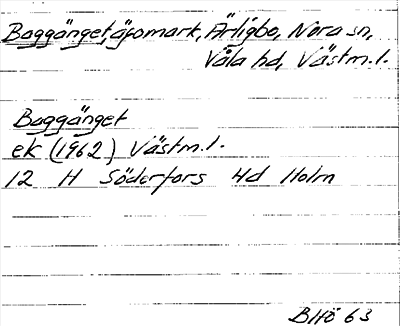 Baggänget, ägomark, Ärligbo, Nora sn,
Våla hd, Västm.l.
Baggänget
ek (1962) Västm.l.
12 H Söderfors 4d Holm
BHö 63